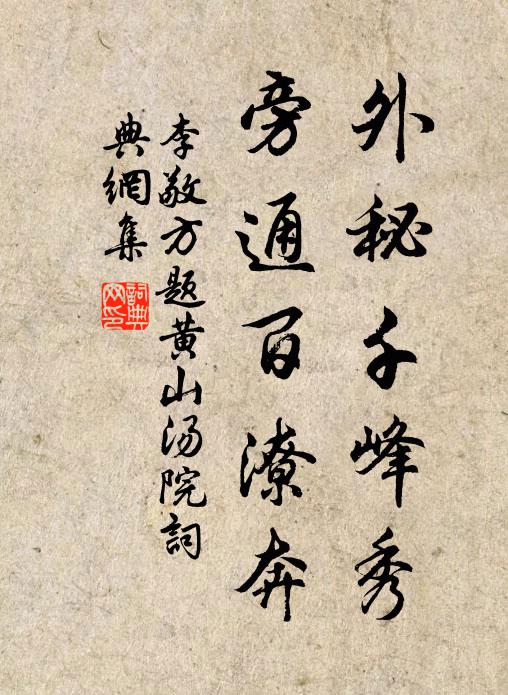 外秘千峰秀
旁通百潦奔
李敬方题黄山汤院詞
典網集
詞典
网印